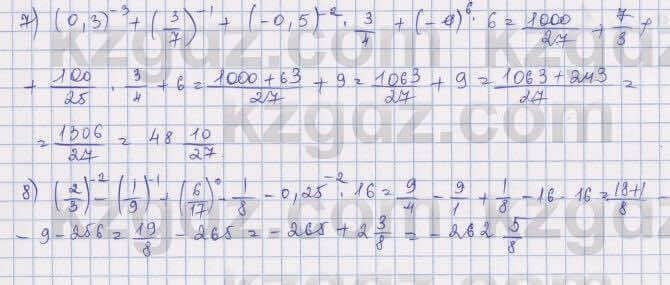 7) (0,3)^{-3} + (3/7)^{-1} + (-0,5)^{-2} · 3/4 + (-1)^6 · 6 = 1000/27 + 7/3 +
+ 100/25 · 3/4 + 6 = (1000+63)/27 + 9 = 1063/27 + 9 = (1063+243)/27 =
= 1306/27 = 48 10/27
8) (2/3)^{-2} - (1/9)^{-1} + (6/17)^0 · 1/8 - 0,25^{-2} · 16 = 9/4 - 9/1 + 1/8 - 16 · 16 = (18+1)/8 -
- 9 - 256 = 19/8 - 265 = -265 + 2 3/8 = -262 5/8
kzgdz.com